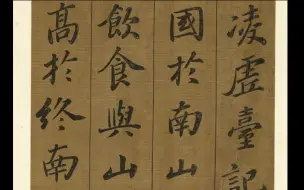 凌虛臺記
國於南山
飲食與山
高於終南